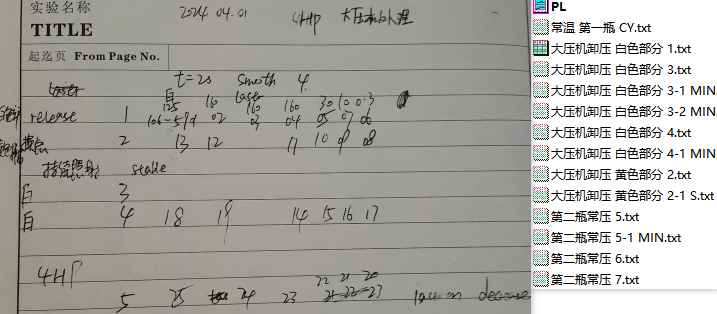 实验名称
TITLE
2024.04.01 4HP 大压机处理
起迄页 From Page No.
t=2s smooth 4
白 laser
125 10 160 160 30 10 0.3
release 1 106-5 02 03 04 05 07 06
2 13 12 11 10 09 08
持续照射 stable
白 3
白 4 18 19 14 15 16 17
4HP
22 21 20
5 25 24 23 21 22 23 laser on decrease
PL
常温 第一瓶 CY.txt
大压机卸压 白色部分 1.txt
大压机卸压 白色部分 3.txt
大压机卸压 白色部分 3-1 MIN.
大压机卸压 白色部分 3-2 MIN.
大压机卸压 白色部分 4.txt
大压机卸压 白色部分 4-1 MIN.
大压机卸压 黄色部分 2.txt
大压机卸压 黄色部分 2-1 S.txt
第二瓶常压 5.txt
第二瓶常压 5-1 MIN.txt
第二瓶常压 6.txt
第二瓶常压 7.txt